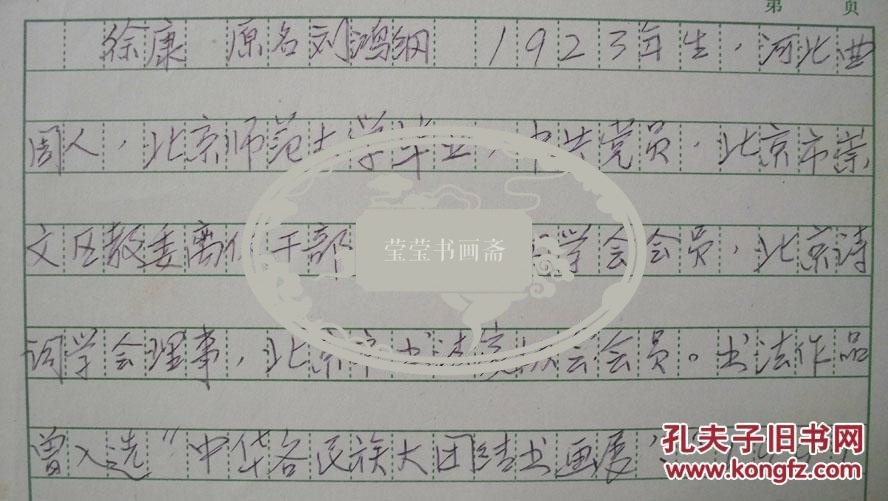 第 页
徐康 原名刘鸿纲 1923年生，河北曲
周人，北京师范大学毕业，中共党员，北京市崇
文区教委离休干部 学会会员，北京诗
词学会理事，北京市书法家协会会员。书法作品
曾入选“中华各民族大团结书画展”
莹莹书画斋
孔夫子旧书网
www.kongfz.com